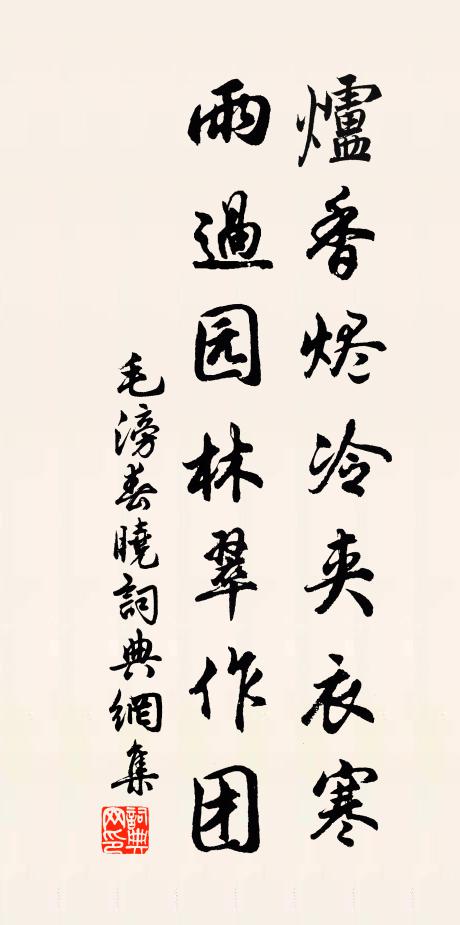 爐香烬冷夹衣寒
雨過园林翠作团
毛滂春曉詞典網集
詞典网印